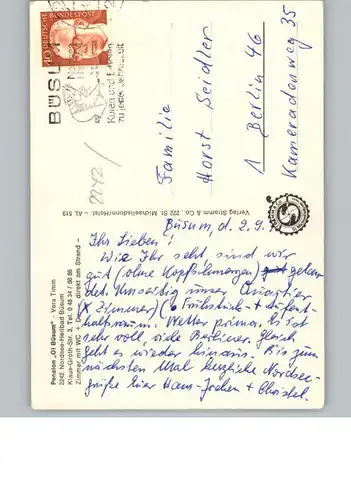 DEUTSCHE BUNDESPOST
40
BÜSUM
Kuren und Erholen
zu jeder Jahreszeit
2242/
Familie
Horst Seidler
1 Berlin 46
Kameradenweg 35
Verlag Stramm & Co. 222 St. Michaelisdonn/Holst. – AL 519
Pension „Ol Büsum“ – Vera Timm
2242 Nordsee-Heilbad Büsum
Klaus-Groth-Str. 3, Tel. 0 48 34 / 86 86
Zimmer mit WC + Dusche, direkt am Strand –
Büsum, d. 2.9.
Ihr Lieben!
Wie Ihr seht, sind wir
gut (ohne Kopfschmerzen) gelan-
det. Umseitig unser Quartier
(x Zimmer) (o Frühstücks- + Aufent-
haltsraum. Wetter prima. Es ist
sehr voll, viele Berliner. Gleich
geht es wieder hinaus. Bis zum
nächsten Mal herzliche Nordsee-
grüße Hans-Jochen + Christel.